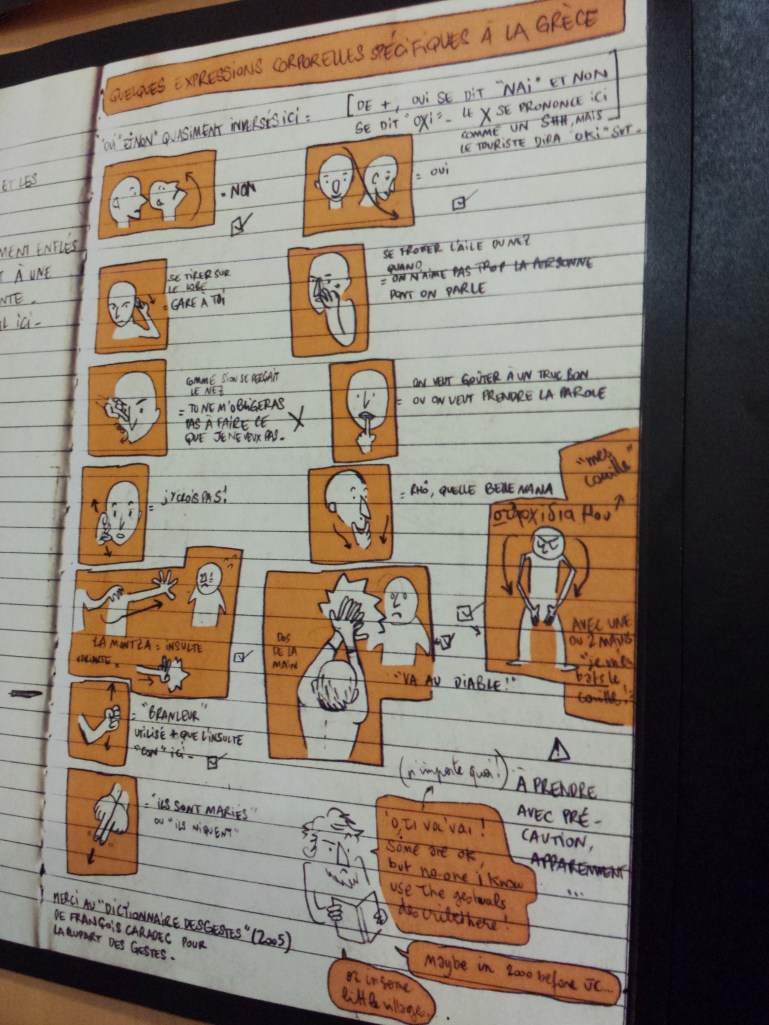 ET LES
MENT ENFLÉS
T À UNE
NTE.
IL ICI.
QUELQUES EXPRESSIONS CORPORELLES SPÉCIFIQUES À LA GRÈCE
"OUI" ET "NON" QUASIMENT INVERSÉS ICI :
[DE +, OUI SE DIT "NAI" ET NON
SE DIT "OXI" - LE X SE PRONONCE ICI
COMME UN SHH, MAIS
LE TOURISTE DIRA "OKI" SVT.]
= NON
= OUI
SE TIRER SUR
LE LOBE
= GARE À TOI
SE FROTTER L'AILE DU NEZ
QUAND
= ON N'AIME PAS TROP LA PERSONNE
DONT ON PARLE
COMME SI ON SE PERÇAIT
LE NEZ
= TU NE M'OBLIGERAS
PAS À FAIRE CE
QUE JE NE VEUX PAS.
X
ON VEUT GOÛTER À UN TRUC BON
= OU ON VEUT PRENDRE LA PAROLE
= J'Y CROIS PAS!
= RHÔ, QUELLE BELLE NANA
"mes
couilles"
στ'αρχιδια μου
AVEC UNE
OU 2 MAINS
"je m'en
bats les
couilles!"
LA MONTZA = INSULTE
VARIANTE.
DOS
DE LA
MAIN
"VA AU DIABLE!"
= "BRANLEUR"
UTILISÉ + QUE L'INSULTE
"CON" ICI -
= "ILS SONT MARIÉS"
OU "ILS NIQUENT"
(n'importe quoi!)
À PRENDRE
AVEC PRÉ-
CAUTION,
APPAREMMENT
...
'O,ti va'vai!
Some are ok,
but no-one i know
use the gestuals
described here!
Maybe in 2000 before JC...
or in some
little village.
MERCI AU "DICTIONNAIRE DES GESTES" (2005)
DE FRANÇOIS CARADEC POUR
LA PLUPART DES GESTES.